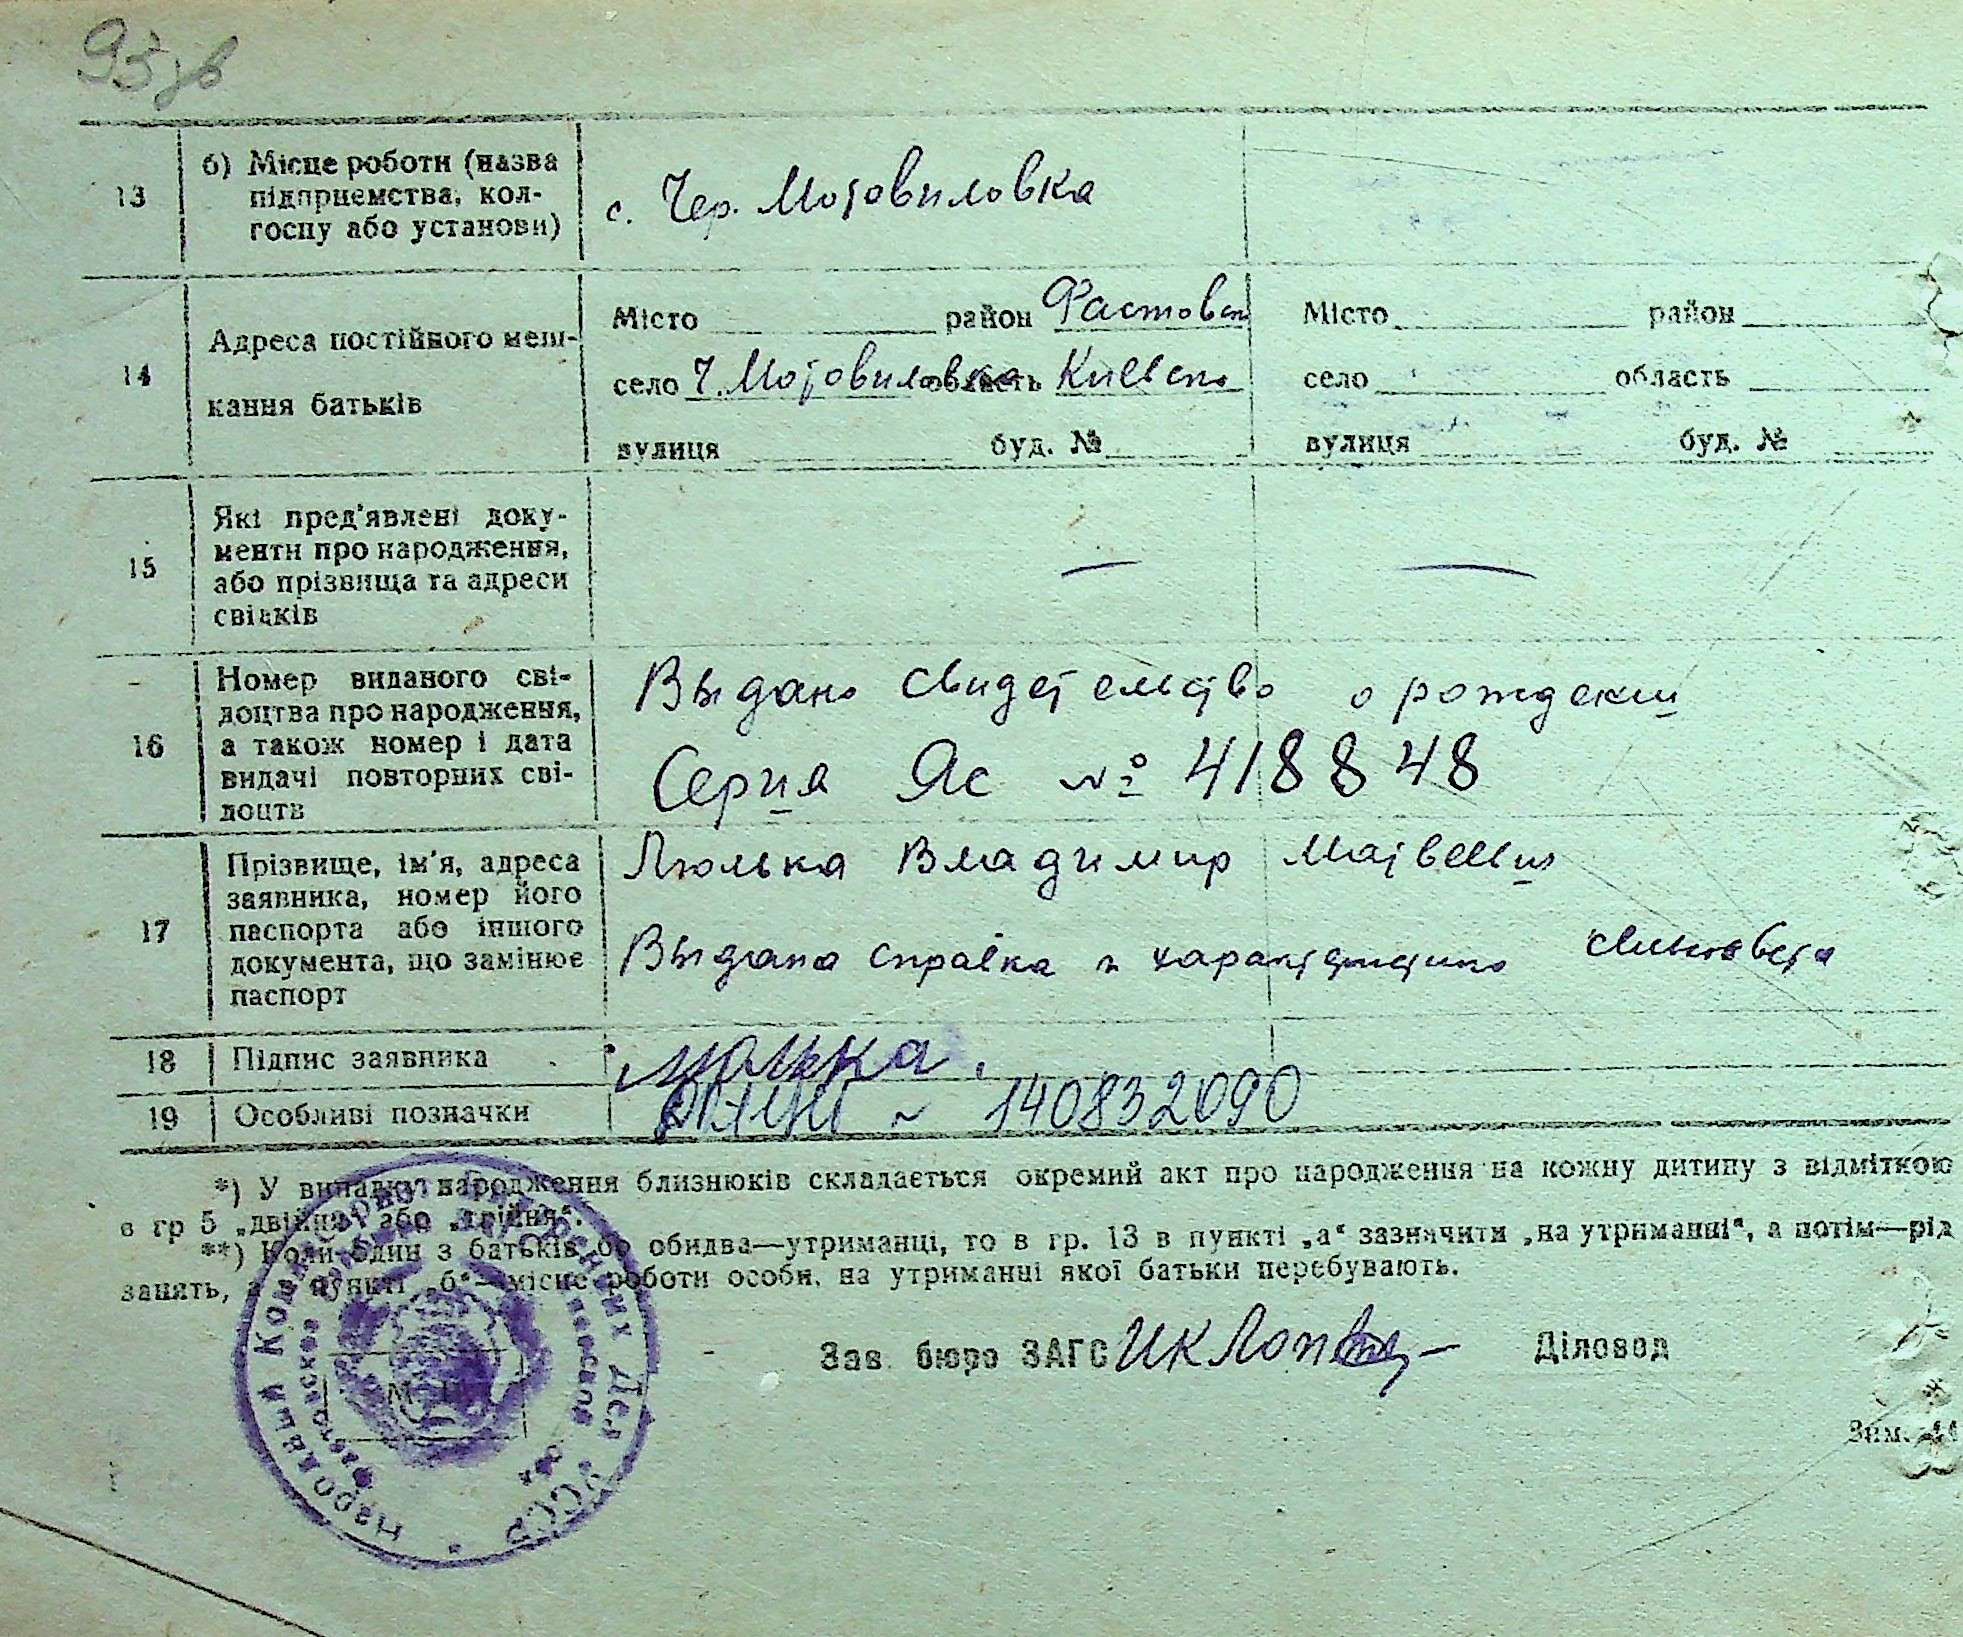 93 зв
13
б) Місце роботи (назва
підприємства, кол-
госпу або установи)
с. Чер. Мотовиловка
14
Адреса постійного меш-
кання батьків
Місто район Фастовск
село Ч. Мотовиловка область Киевск
вулиця буд. №
Місто район
село область
вулиця буд. №
15
Які пред'явлені доку-
менти про народження,
або прізвища та адреси
свідків
— —
16
Номер виданого сві-
доцтва про народження,
а також номер і дата
видачі повторних сві-
доцтв
Выдано свидетельство о рождении
Серия Яс № 418848
17
Прізвище, ім'я, адреса
заявника, номер його
паспорта або іншого
документа, що замінює
паспорт
Люлька Владимир Матвеевич
Выдана справка
18
Підпис заявника
Люлька
19
Особливі позначки
~ 140832090
*) У випадку народження близнюків складається окремий акт про народження на кожну дитину з відміткою
в гр 5 „двійня“, або „трійня“.
**) Коли один з батьків, або обидва—утриманці, то в гр. 13 в пункті „а“ зазначити „на утриманні“, а потім—рід
занять, а в пункті „б“—місце роботи особи, на утриманні якої батьки перебувають.
Зав. бюро ЗАГС
Діловод
М. П.
Народный Комиссариат Внутренних Дел УССР
Зам.